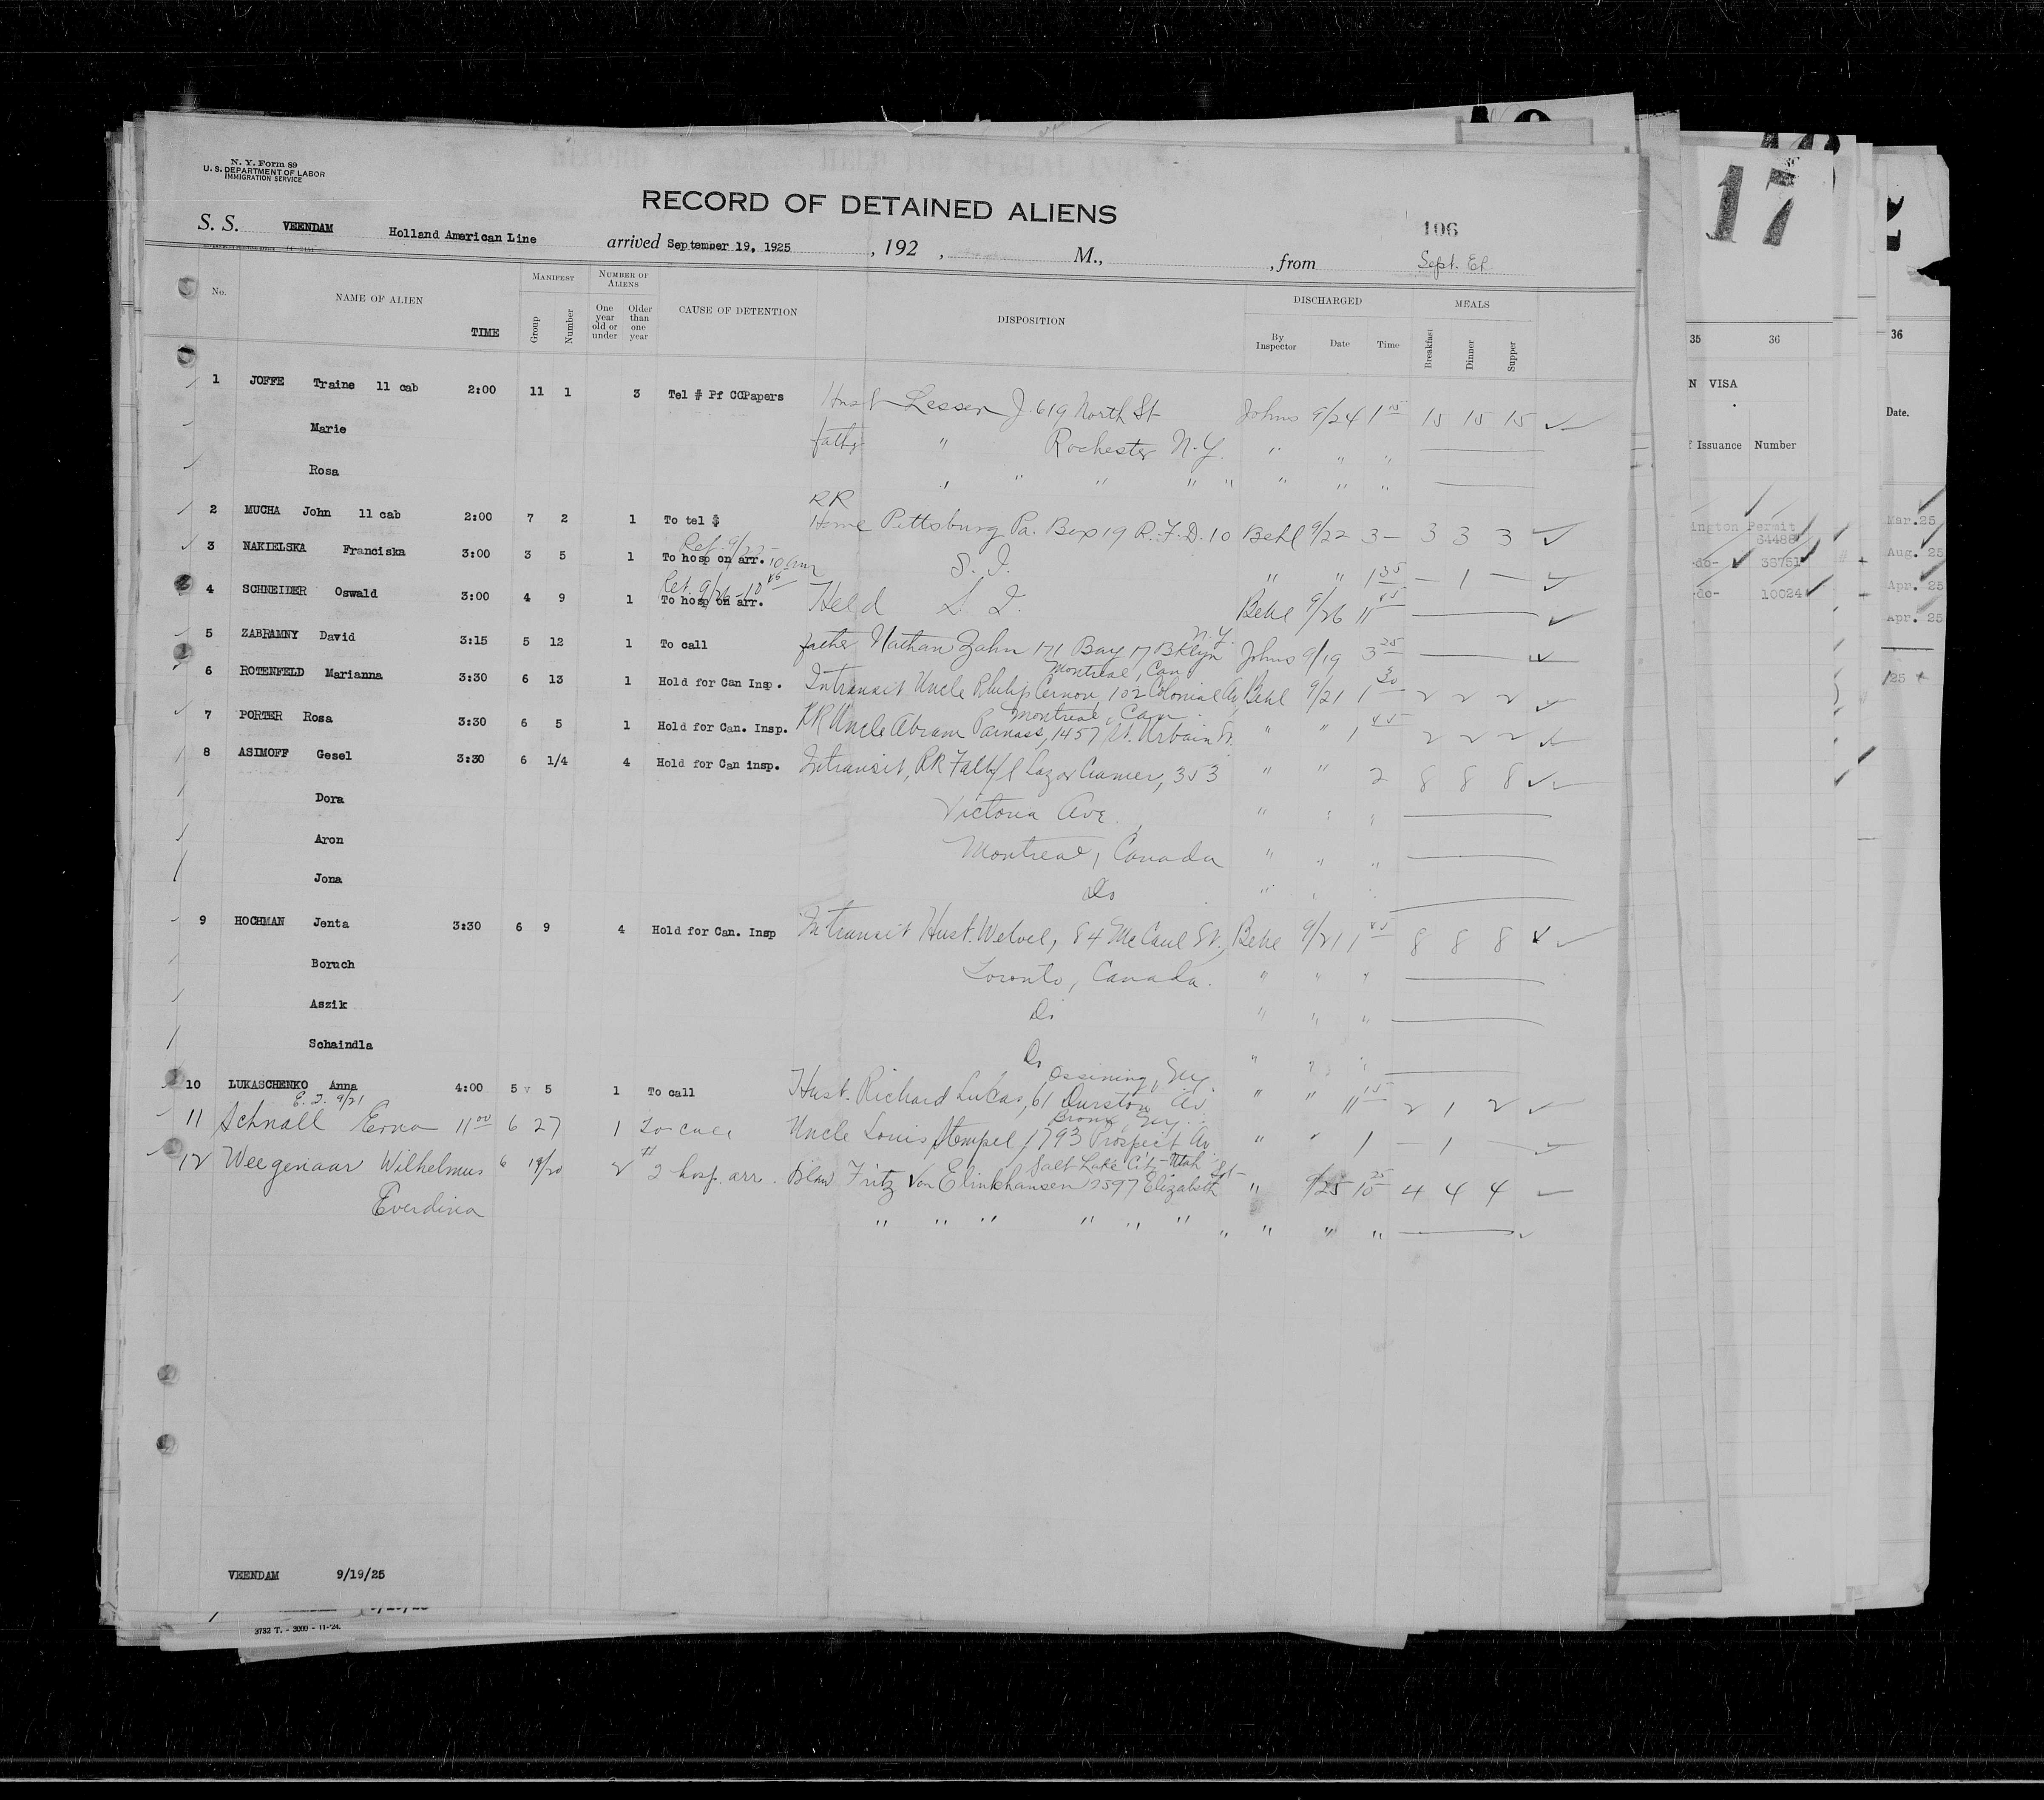 N. Y. Form 89
U. S. DEPARTMENT OF LABOR
IMMIGRATION SERVICE
RECORD OF DETAINED ALIENS
106
S. S. VEENDAM Holland American Line arrived September 19, 1925, 192 , M., , from Sept.
No. NAME OF ALIEN TIME MANIFEST Group Number NUMBER OF ALIENS One year old or under Older than one year CAUSE OF DETENTION DISPOSITION DISCHARGED By Inspector Date Time MEALS Breakfast Dinner Supper
1 JOFFE Traine 11 cab 2:00 11 1 3 Tel # Pf CCPapers Husb Lesser J. 619 North St Johns 9/24 1 15 15 15 15
Marie father " Rochester N.Y. " " "
Rosa " " " " " " " "
RR
2 MUCHA John 11 cab 2:00 7 2 1 To tel $ Home Pittsburg Pa. Box 19 R.F.D. 10 Behl 9/22 3- 3 3 3
3 NAKIELSKA Franciska 3:00 3 5 1 To hosp on arr. 10 am S. I. " " 1 35 - 1 -
4 SCHNEIDER Oswald 3:00 4 9 1 To hosp on arr. Held S. I. Behl 9/26 11
5 ZABRAMNY David 3:15 5 12 1 To call father Nathan Zahn 171 Bay 17 Bklyn N.Y. Johns 9/19 3 25
Montreal, Can
6 ROTENFELD Marianna 3:30 6 13 1 Hold for Can Insp. Intransit Uncle Philip Cernov, 102 Colonial Av, Behl 9/21 1 30 2 2 2
Montreal, Can.
7 PORTER Rosa 3:30 6 5 1 Hold for Can. Insp. RR Uncle Abram Parnass, 1457 St. Urbain St. " " 1 45 2 2 2
8 ASIMOFF Gesel 3:30 6 1/4 4 Hold for Can insp. Intransit, RR Lazor Cramer, 353 " " 2 8 8 8
Dora Victoria Ave. " " "
Aron Montreal, Canada " " "
Jona Do "
9 HOCHMAN Jenta 3:30 6 9 4 Hold for Can. Insp Intransit Husb. Welvel, 84 McCaul St., Behl 9/21 1 8 8 8
Boruch Toronto, Canada. " " "
Aszik Do " " "
Schaindla Do " " "
Ossining, N.Y.
10 LUKASCHENKO Anna 4:00 5 5 1 To call Husb. Richard Lucas, 61 Durston Av. " " 11 15 2 1 2
9/21
Bronx, N.Y.
11 Schnall Erna 11 00 6 27 1 To call Uncle Louis Stempel, 1793 Prospect Av " " 1 - 1
Salt Lake City - Utah
12 Weegenaar Wilhelmus 6 19/20 2 2 hosp. arr. Blaw Fritz Von Elinkhausen 2597 Elizabeth St " 9/25 10 25 4 4 4
Everdina " " " " " " " " " "
VEENDAM 9/19/25
3732 T. - 3000 - 11-'24.
17
35 36
N VISA
Issuance Number
ington Permit
64488
-do- 36751
-do- 10024
36
Date.
Mar. 25
Aug. 25
Apr. 25
Apr. 25